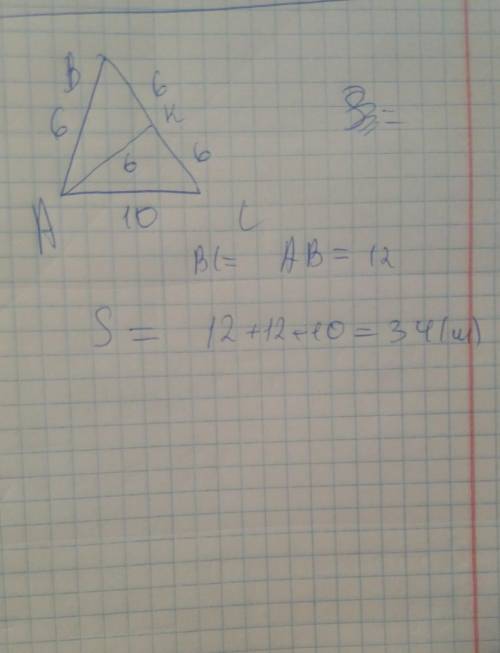 B 6
6 K
6 6
A 10 C
BC= AB = 12
S = 12+12+10=34(м)